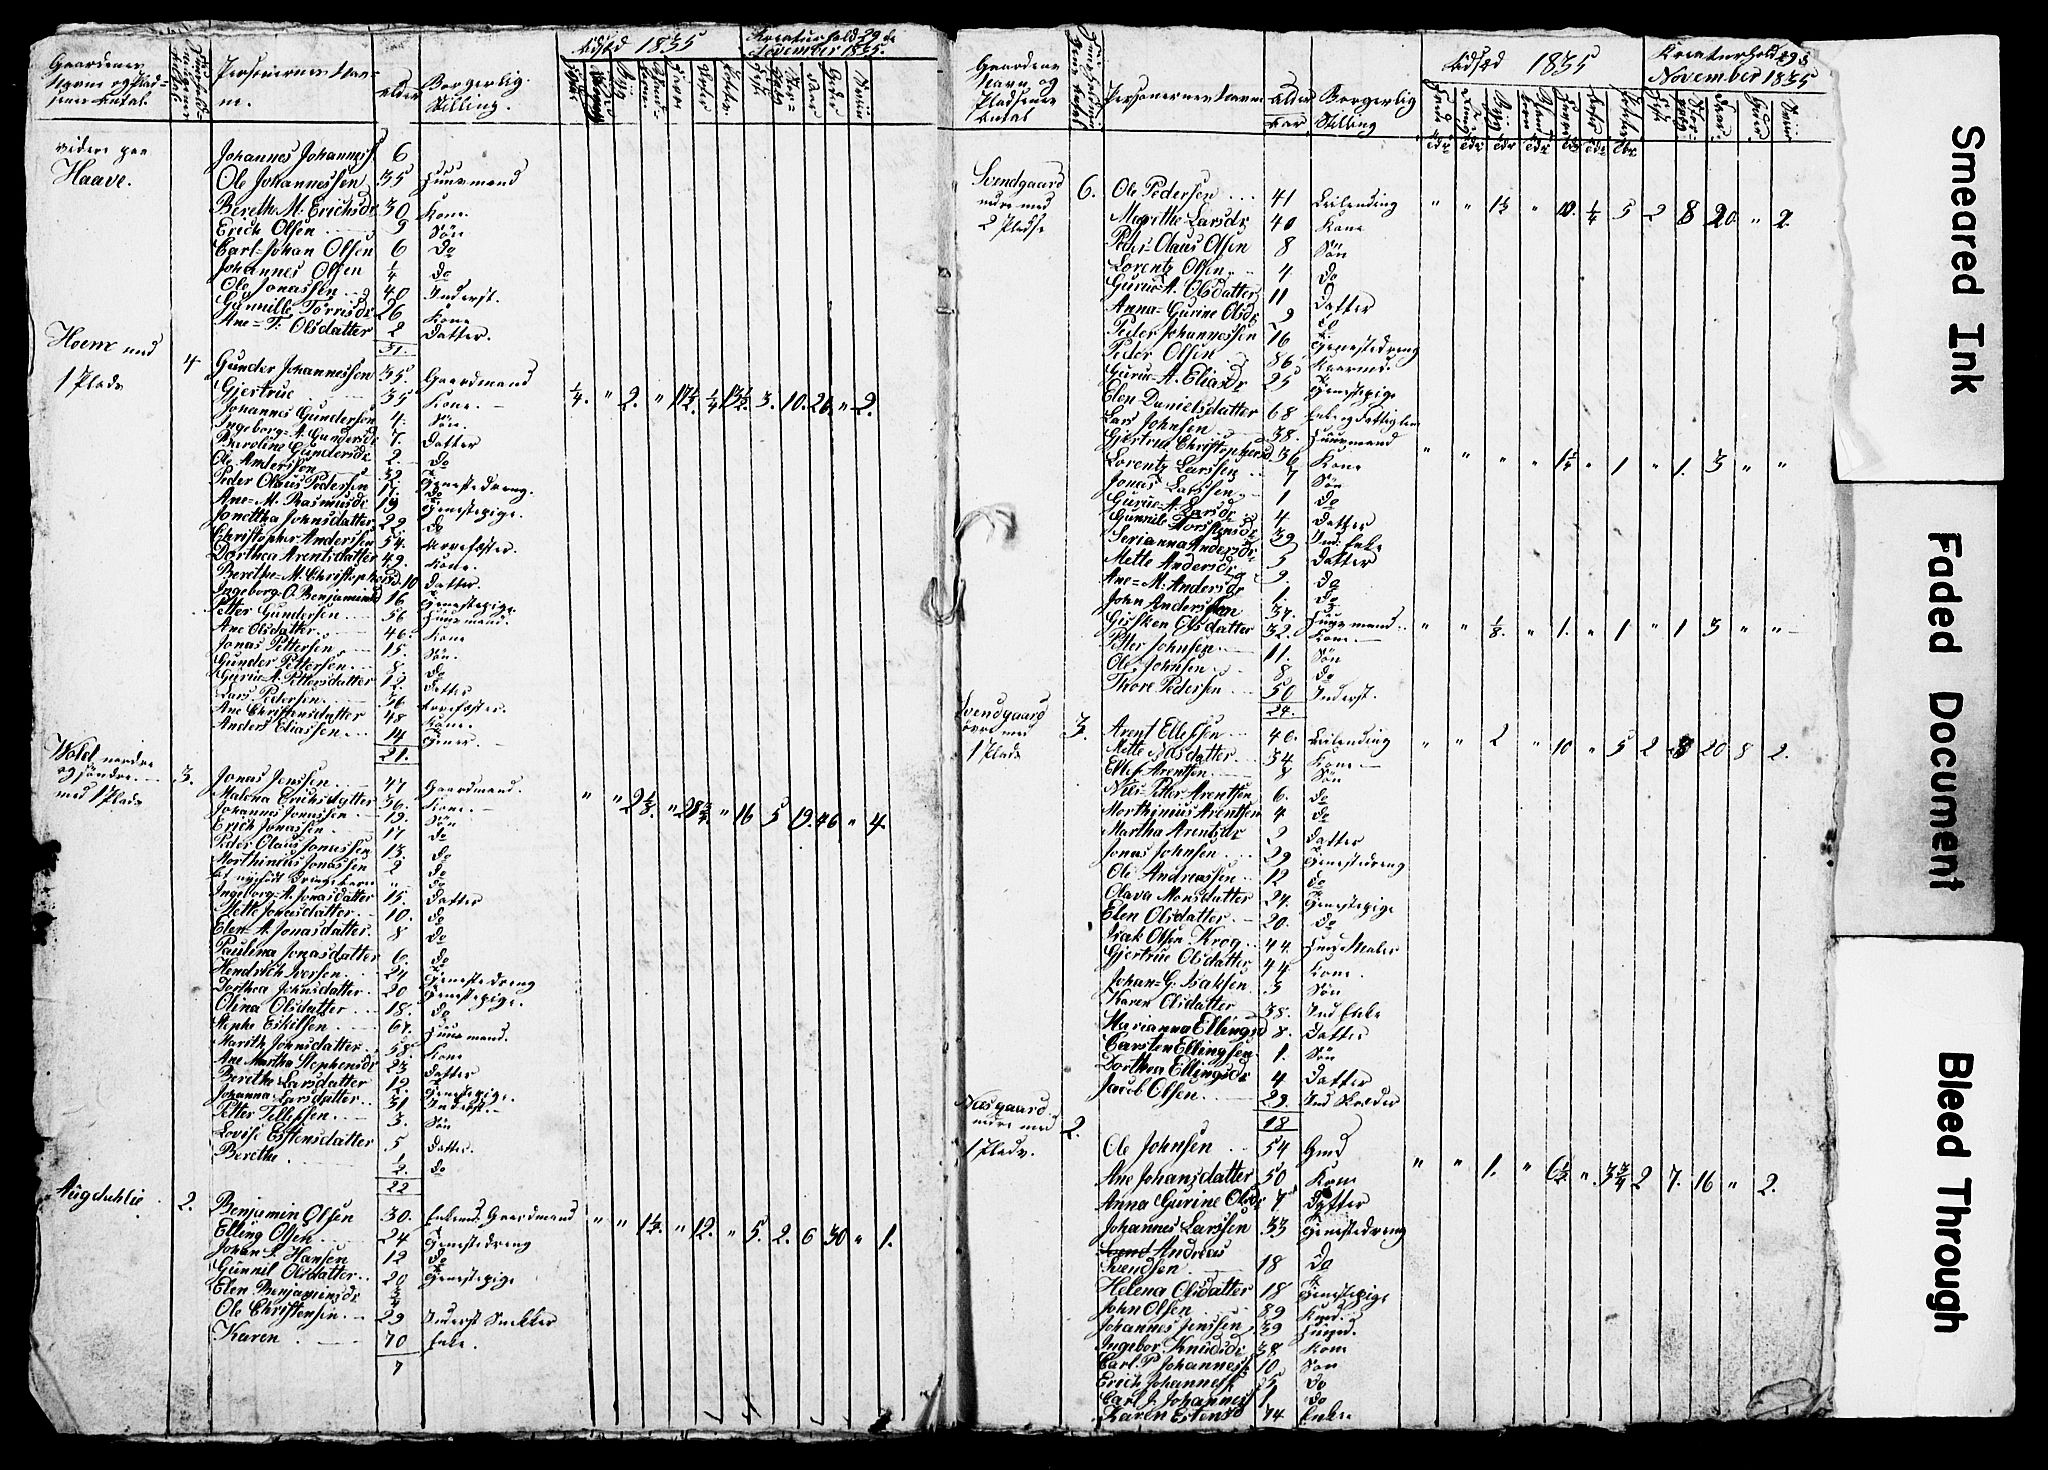 Gaardenes
Navn og Plad-
senes Antal.
Personernes Nav-
n.
Alder
Borgerlig
Stilling.
Udsæd 1835
Kreaturhold 29de
November 1835.
videre paa
Haave.
Johannes Johanness. 6
Ole Johannessen 35 Huusmand
Bereth M. Erichsdr 30 Kone
Erich Olsen 9 Søn
Carl Johan Olsen 6 Do
Johannes Olsen ¼ Do
Ole Jonassen 40 Inderst.
Gunnille Törrisdr 26 Kone
Ane= T. Olsdatter 2 Datter.
31.
Hoem med
1 Plads
4 Gunder Johannessen 35. Gaardmand
Gjertrue 35 Kone. ¼. " 2. " 17½. ¼ 13½. 3. 10. 20. " 2.
Johannes Gundersen 4. Søn.
Ingeborg-A. Gundersdr 7. Datter
Baroline Gundersdr 2. Do
Ole Anderssen 32 Tjenestedreng.
Peder Olaus Pedersen 17. Do
Ane= M. Rasmusdr 19 Tjenestepige.
Jonettha Johnsdatter 22 Do
Christopher Anderssen 54.
Dorthea Arentsdatter 49. Kone.
Berethe= M. Christophersd. 10 Datter.
Ingeborg O. Benjaminsd 16 Tjenestepige
Petter Gundersen 56 Huusmand.
Ane Olsdatter 46. Kone
Jonas Pettersen 15. Søn.
Gunder Pettersen 8. Do
Gurue A. Pettersdatter 12 Datter
Lars Pedersen 36
Ane Christensdatter 48 Kone.
Anders Eliassen 14
21.
Wold nordre
og søndre
med 1 Plads
3. Jonas Jenssen 47 Gaardmand.
Malena Erichsdatter 36. Kone. " " 2⅛. " 28¾. " 16 5 19. 46 " 4.
Johannes Jonassen 19. Søn
Erich Jonassen 17 Do
Peder Olaus Jonassen 13. Do
Morthinius Jonassen 2 Do
Et nyfødt Drengebarn " Do
Ingeborg-A. Jonasdatter 15. Datter
Mette Jonasdatter 10. Do
Elen A. Jonasdatter 8 Do
Paulina Jonasdatter 6. Do
Hendrich Iversen 24 Tjenestedreng
Dorthea Johnsdatter 20 Tjenestepige.
Olina Olsdatter 18. Do
Stephe Eskilsen 67. Huusmand.
Marith Johnsdatter 58 Kone
Ane Martha Stephensdr 23 Datter
Berethe Larsdatter 12. Tjenestepige.
Johanna Larsdatter 31 Inderst.
Petter Tellefsen 3. Søn
Lovise Estensdatter 5 Datter.
Berethe ½. Do
22
Augdahlie
2. Benjamin Olsen 30. Enkemd. Gaardmand " " 1½. " 12. " 5. 2. 6 30 " 1.
Elling Olsen 24 Tjenestedreng
Johan L Hansen 12 Do
Gunnil Olsdatter 20 Tjenestepige
Elen Benjaminsdr ¾
Ole Christensen 29 Inderst Snekker
Karen 70 Enke.
7
Gaardenes
Navn og
Pladsenes
Antal
Personernes Navne
Alder
aar
Borgerlig
Stilling
Udsæd 1835
Kreaturhold 29de
November 1835
Svendgaard
nedre med
2 Pladse
6. Ole Pedersen 41 Leilending " " 1½ " 10. ¼ 5 2 8 20. " 2.
Marethe Larsdr 40 Kone
Peder Olaus Olsen 8 Søn
Lorentz Olsen 4 Do
Gurue A. Olsdatter 11 Datter
Anna= Gurine Olsdr 9 Do
Peder Johannessen 16 Tjenestedreng
Peder Olsen 86 Kaarmd.
Gurue A. Eliasdr 25 Tjenestepige
Elen Danielsdatter 68
Lars Johnsen 38. Huusmand
Gjertrue Christophersd 36 Kone " " " " 1½ " 1 " 1. 3 " "
Lorentz Larssen 7 Søn
Jonas Larssen 1 Do
Gurue-A. Larsdr 4 Datter
Gunnile Torstensdr 39 Ind. Enke
Serianna Andersdr 5 Datter
Mette Andersdr 9. Do
Ane= M. Andersdr 1. Do
John Anderssen 37. Huusmand " " ⅛. " 1. " 1 " 1 3 " "
Gisken Olsdatter 32. Kone
Petter Johnsen 11. Søn
Ole Johnsen 8 Do
Thore Pedersen 50 Inderst.
24.
Svendgaard
øvre med
1 Plads
3. Arent Ellefsen 46. Leilending " " 2 " 10 " 5 2 8 20 8 2.
Mette Aasdatter 34 Kone
Ellef Arentsen 8 Søn
Nils Petter Arentsen 6. Do
Morthinius Arentsen 4 Do
Martha Arentsdr 2 Datter
Jonas Johnsen 29 Tjenestedreng
Ole Andreassen 12 Do
Olava Monsdatter 24. Tjenestepige
Elen Olsdatter 20. Do
Isak Olsen Krog 44
Gjertrue Olsdatter 44 Kone.
Johan= G. Isaksen 3 Søn
Karen Olsdatter 38. Ind Enke
Marianna Ellingsd 8. Datter
Carsten Ellingsen 1. Søn
Dorthea Ellingsdr 4 Datter
Jacob Olsen 29.
18
Næsgaard
nedre med
1 Plads.
2. Ole Johnsen 54 Gmd
Ane Johansdatter 50 Kone " " 1. " 6½ " 3¾ 2 7. 16 " 2.
Anna Gurine Olsdr 7 Datter
Johannes Larssen 33 Tjenestedreng
Andreas
Svendsen 18 Do
Helena Olsdatter 18 Tjenestepige
John Olsen 89
Johannes Jenssen 39
Ingebor Knudsdr 38 Kone
Carl. P Johanness. 10 Søn
Erich Johanness. 5 Do
Carl J. Johanness 1 Do
Karen Estensd 74 Enke
Smeared Ink
Faded Document
Bleed Through